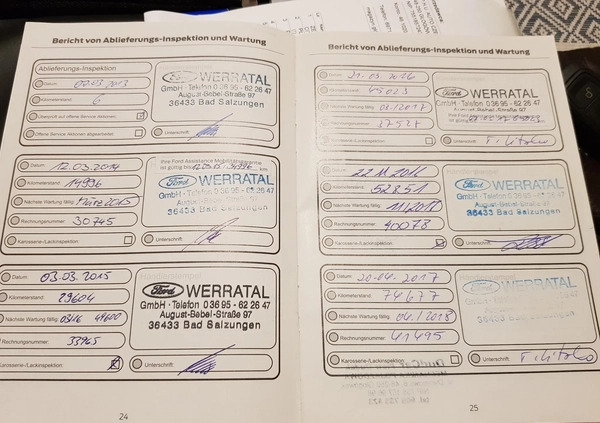 Bericht von Ablieferungs-Inspektion und Wartung
Ablieferungs-Inspektion
Datum: 07.03.2013
Kilometerstand: 6
Überprüft auf offene Service Aktionen:
Offene Service Aktionen abgearbeitet:
Ford WERRATAL
GmbH · Telefon 0 36 95 - 62 26 47
August-Bebel-Straße 97
36433 Bad Salzungen
Unterschrift:
Datum: 12.03.2014
Kilometerstand: 14996
Nächste Wartung fällig: März 2015
Rechnungsnummer: 30745
Karosserie-/Lackinspektion:
Ihre Ford Assistance Mobilitätsgarantie
ist gültig bis: km
Ford WERRATAL
GmbH · Telefon 0 36 95 - 62 26 47
August-Bebel-Straße 97
36433 Bad Salzungen
Unterschrift:
Datum: 03.03.2015
Kilometerstand: 29604
Nächste Wartung fällig: 03/16 49600
Rechnungsnummer: 33965
Karosserie-/Lackinspektion:
Ford WERRATAL
GmbH · Telefon 0 36 95 - 62 26 47
August-Bebel-Straße 97
36433 Bad Salzungen
Unterschrift:
24
Bericht von Ablieferungs-Inspektion und Wartung
Datum: 21-03 2016
Kilometerstand: 45023
Nächste Wartung fällig: 03/2017
Rechnungsnummer: 37527
Karosserie-/Lackinspektion:
Ford WERRATAL
GmbH · Telefon 0 36 95 - 62 26 47
August-Bebel-Straße 97
36433 Bad Salzungen
Unterschrift:
Datum: 22.11.2016
Kilometerstand: 52851
Nächste Wartung fällig: 11/2017
Rechnungsnummer: 40078
Karosserie-/Lackinspektion:
Ford WERRATAL
GmbH · Telefon 0 36 95 - 62 26 47
August-Bebel-Straße 97
36433 Bad Salzungen
Unterschrift:
Datum: 20-04-2017
Kilometerstand: 74677
Nächste Wartung fällig: 04/2018
Rechnungsnummer: 41495
Karosserie-/Lackinspektion:
Ford WERRATAL
36433 Bad Salzungen
Unterschrift:
25